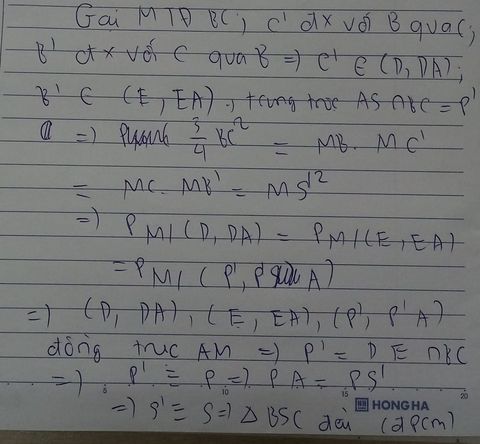 Gọi M TĐ BC; C' đx với B qua C;
B' đx với C qua B => C' ∈ (D, DA);
B' ∈ (E, EA), trung trực AS ∩ BC = P'
=> 3/4 BC² = MB. MC'
= MC. MB' = MS'²
=> P M/(D, DA) = P M/(E, EA)
= P M/(P', P'A)
=> (D, DA), (E, EA), (P', P'A)
đồng trục AM => P' = DE ∩ BC
=> P' ≡ P => PA = PS'
=> S' ≡ S => Δ BSC đều (đpcm)
5 10 15 20
HONG HA